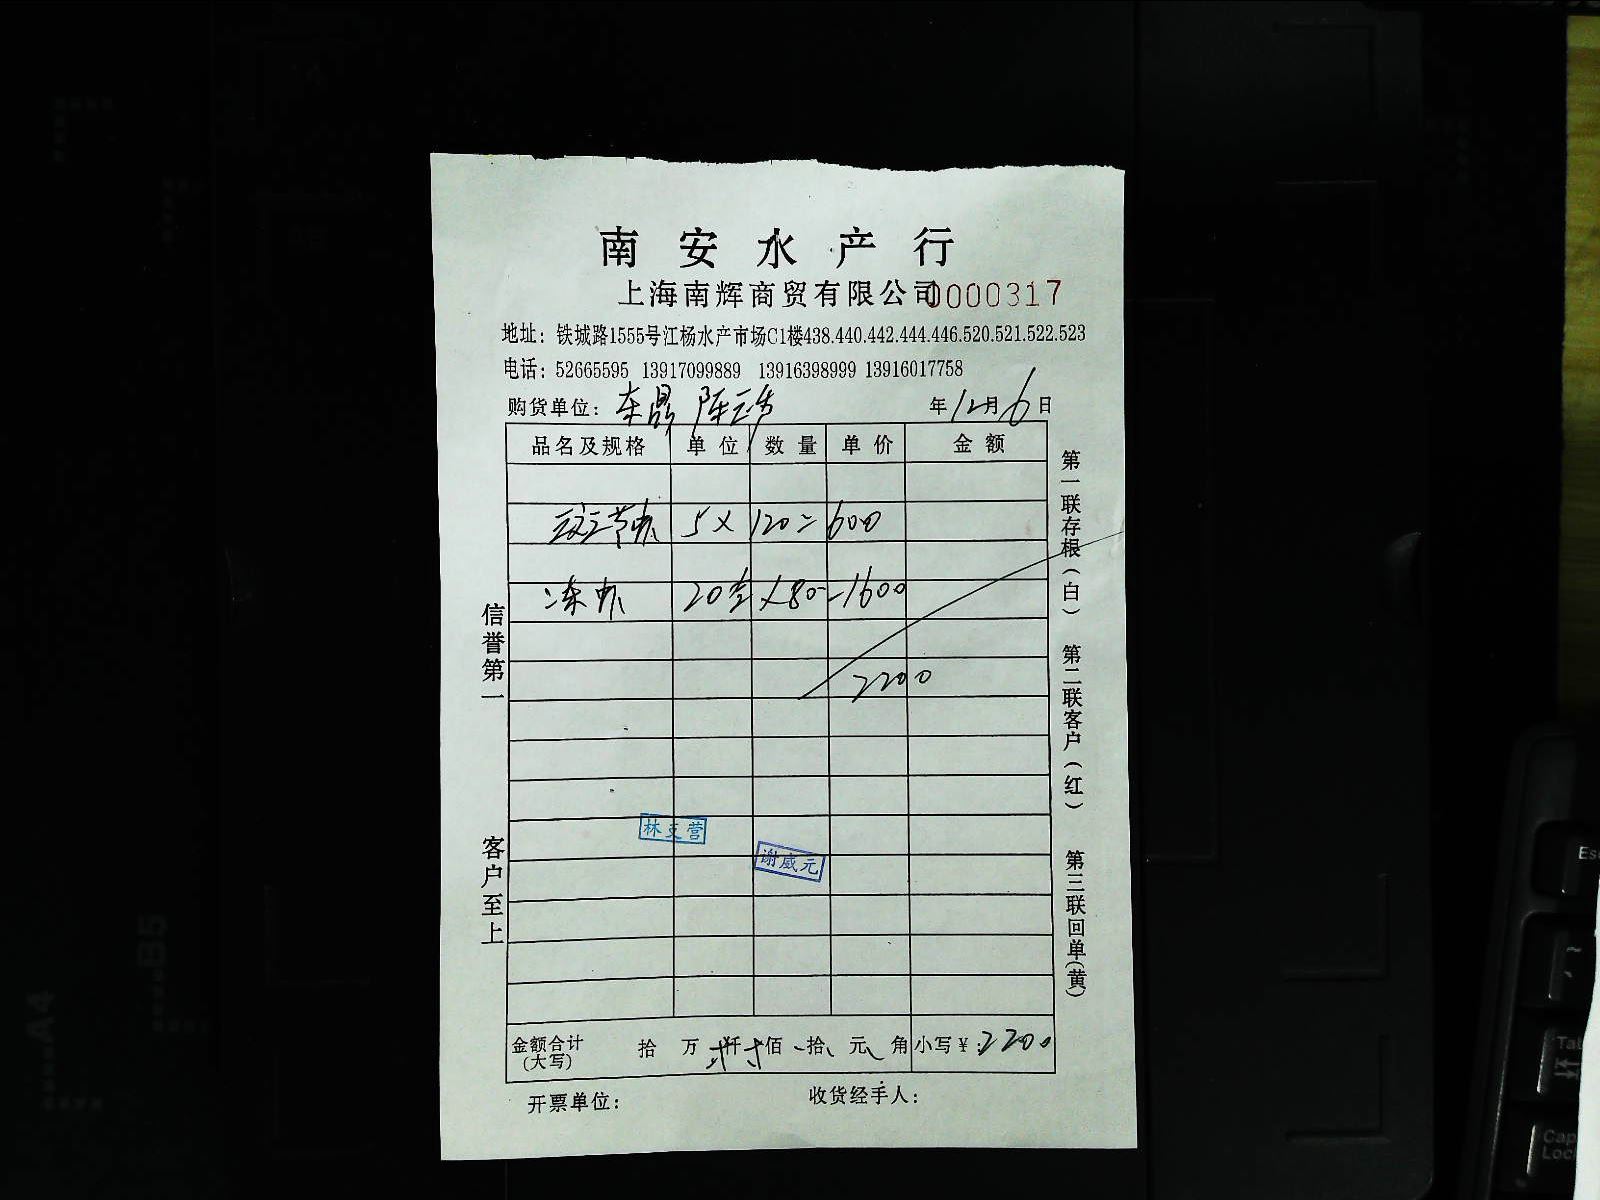 南安水产行
上海南辉商贸有限公司 0000317
地址：铁城路1555号江杨水产市场C1楼438.440.442.444.446.520.521.522.523
电话：52665595 13917099889 13916398999 13916017758
购货单位：东鼎 陈 年12月6日
品名及规格 单位 数量 单价 金额
节虾 5×120=600
冻虾 20盒×80=1600
2200
林 营
谢威元
金额合计（大写） 拾 万 贰仟 贰佰 拾 元 角 小写￥：2200
开票单位： 收货经手人：
信誉第一
客户至上
第一联存根（白）
第二联客户（红）
第三联回单（黄）
A4
B5
Esc
Tab
Caps Lock